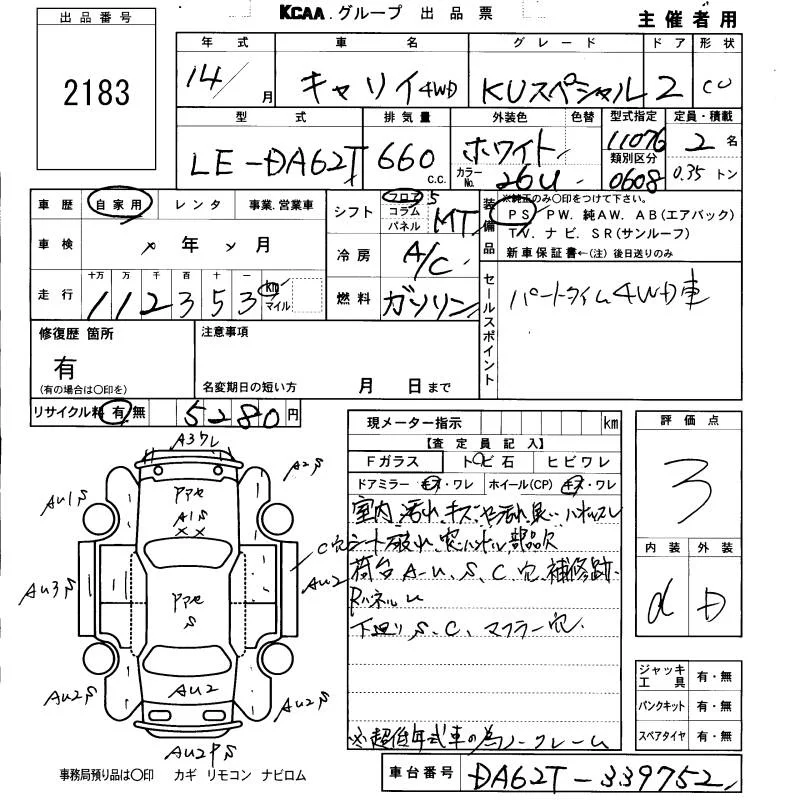 KCAA グループ 出品票
主催者用
出品番号
2183
年式 車名 グレード ドア 形状
14/ 月 キャリイ4WD KUスペシャル 2 CU
型式 排気量 外装色 色替 型式指定 定員・積載
LE-DA62T 660 c.c. ホワイト カラーNo. 26U 11076 類別区分 0608 2名 0.35トン
車歴 自家用 レンタ 事業.営業車
シフト フロア コラム パネル 5 MT
装備品 ※純正のみ〇印をつけて下さい。
PS PW. 純AW. AB(エアバック)
TV. ナビ. SR(サンルーフ)
新車保証書←(注) 後日送りのみ
車検 年 月
冷房 A/C
走行 十万 万 千 百 十 一
112353 km マイル
燃料 ガソリン
セールスポイント
パートタイム4WD車
修復歴 箇所
有
(有の場合は〇印を)
注意事項
名変期日の短い方 月 日まで
リサイクル料 有 無 5280円
現メーター指示 km
【査定員記入】
Fガラス トビ石 ヒビワレ
ドアミラー キズ・ワレ ホイール(CP) キズ・ワレ
室内汚れ、キズ、
荷台A、U、S、C穴、補修跡.
下廻りS、C、マフラー穴.
※超低年式車の為ノークレーム
評価点
3
内装 外装
d D
ジャッキ工具 有・無
パンクキット 有・無
スペアタイヤ 有・無
A2S
AU1S
A1S
C穴
AU3S
AU2
S
AU2S
AU2
AU2S
事務局預り品は〇印 カギ リモコン ナビロム
車台番号 DA62T-339752